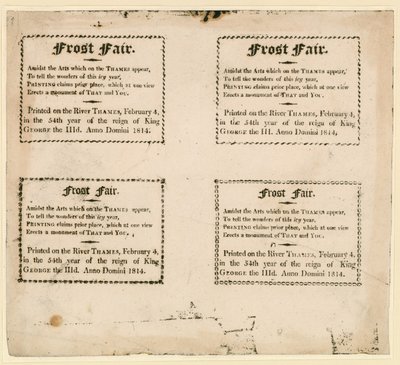 Frost Fair.
Amidst the Arts which on the THAMES appear,
To tell the wonders of this icy year,
PRINTING claims prior place, which at one view
Erects a monument of THAT and YOU.
Printed on the River THAMES, February 4,
in the 54th year of the reign of King
GEORGE the IIId. Anno Domini 1814.
Frost Fair.
Amidst the Arts which on the THAMES appear,
To tell the wonders of this icy year,
PRINTING claims prior place, which at one view
Erects a monument of THAT and YOU.
Printed on the River THAMES, February 4,
in the 54th year of the reign of King
GEORGE the III. Anno Domini 1814.
Frost Fair.
Amidst the Arts which on the THAMES appear,
To tell the wonders of this icy year,
PRINTING claims prior place, which at one view
Erects a monument of THAT and YOU.
Printed on the River THAMES, February 4,
in the 54th year of the reign of King
GEORGE the IIId. Anno Domini 1814.
Frost Fair.
Amidst the Arts which on the THAMES appear,
To tell the wonders of this icy year,
PRINTING claims prior place, which at one view
Erects a monument of THAT and YOU.
Printed on the River THAMES, February 4,
in the 54th year of the reign of King
GEORGE the IIId. Anno Domini 1814.